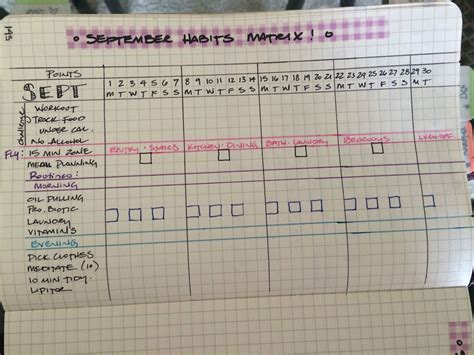 195
SEPTEMBER HABITS MATRIX!
POINTS
1 2 3 4 5 6 7 8 9 10 11 12 13 14 15 16 17 18 19 20 21 22 23 24 25 26 27 28 29 30
SEPT
M T W T F S S M T W T F S S M T W T F S S M T W T F S S M T
challenge
WORKOUT
TRACK FOOD
UNDER CAL.
NO ALCOHOL
FLY: 15 MIN ZONE ENTRY · STAIRS KITCHEN · DINING BATH · LAUNDRY BEDROOMS
MEAL PLANNING
ROUTINES:
MORNING
OIL PULLING
PRO. BIOTIC
LAUNDRY
VITAMIN'S
EVENING
PICK CLOTHES
MEDITATE (10)
10 MIN TIDY
LIPITOR